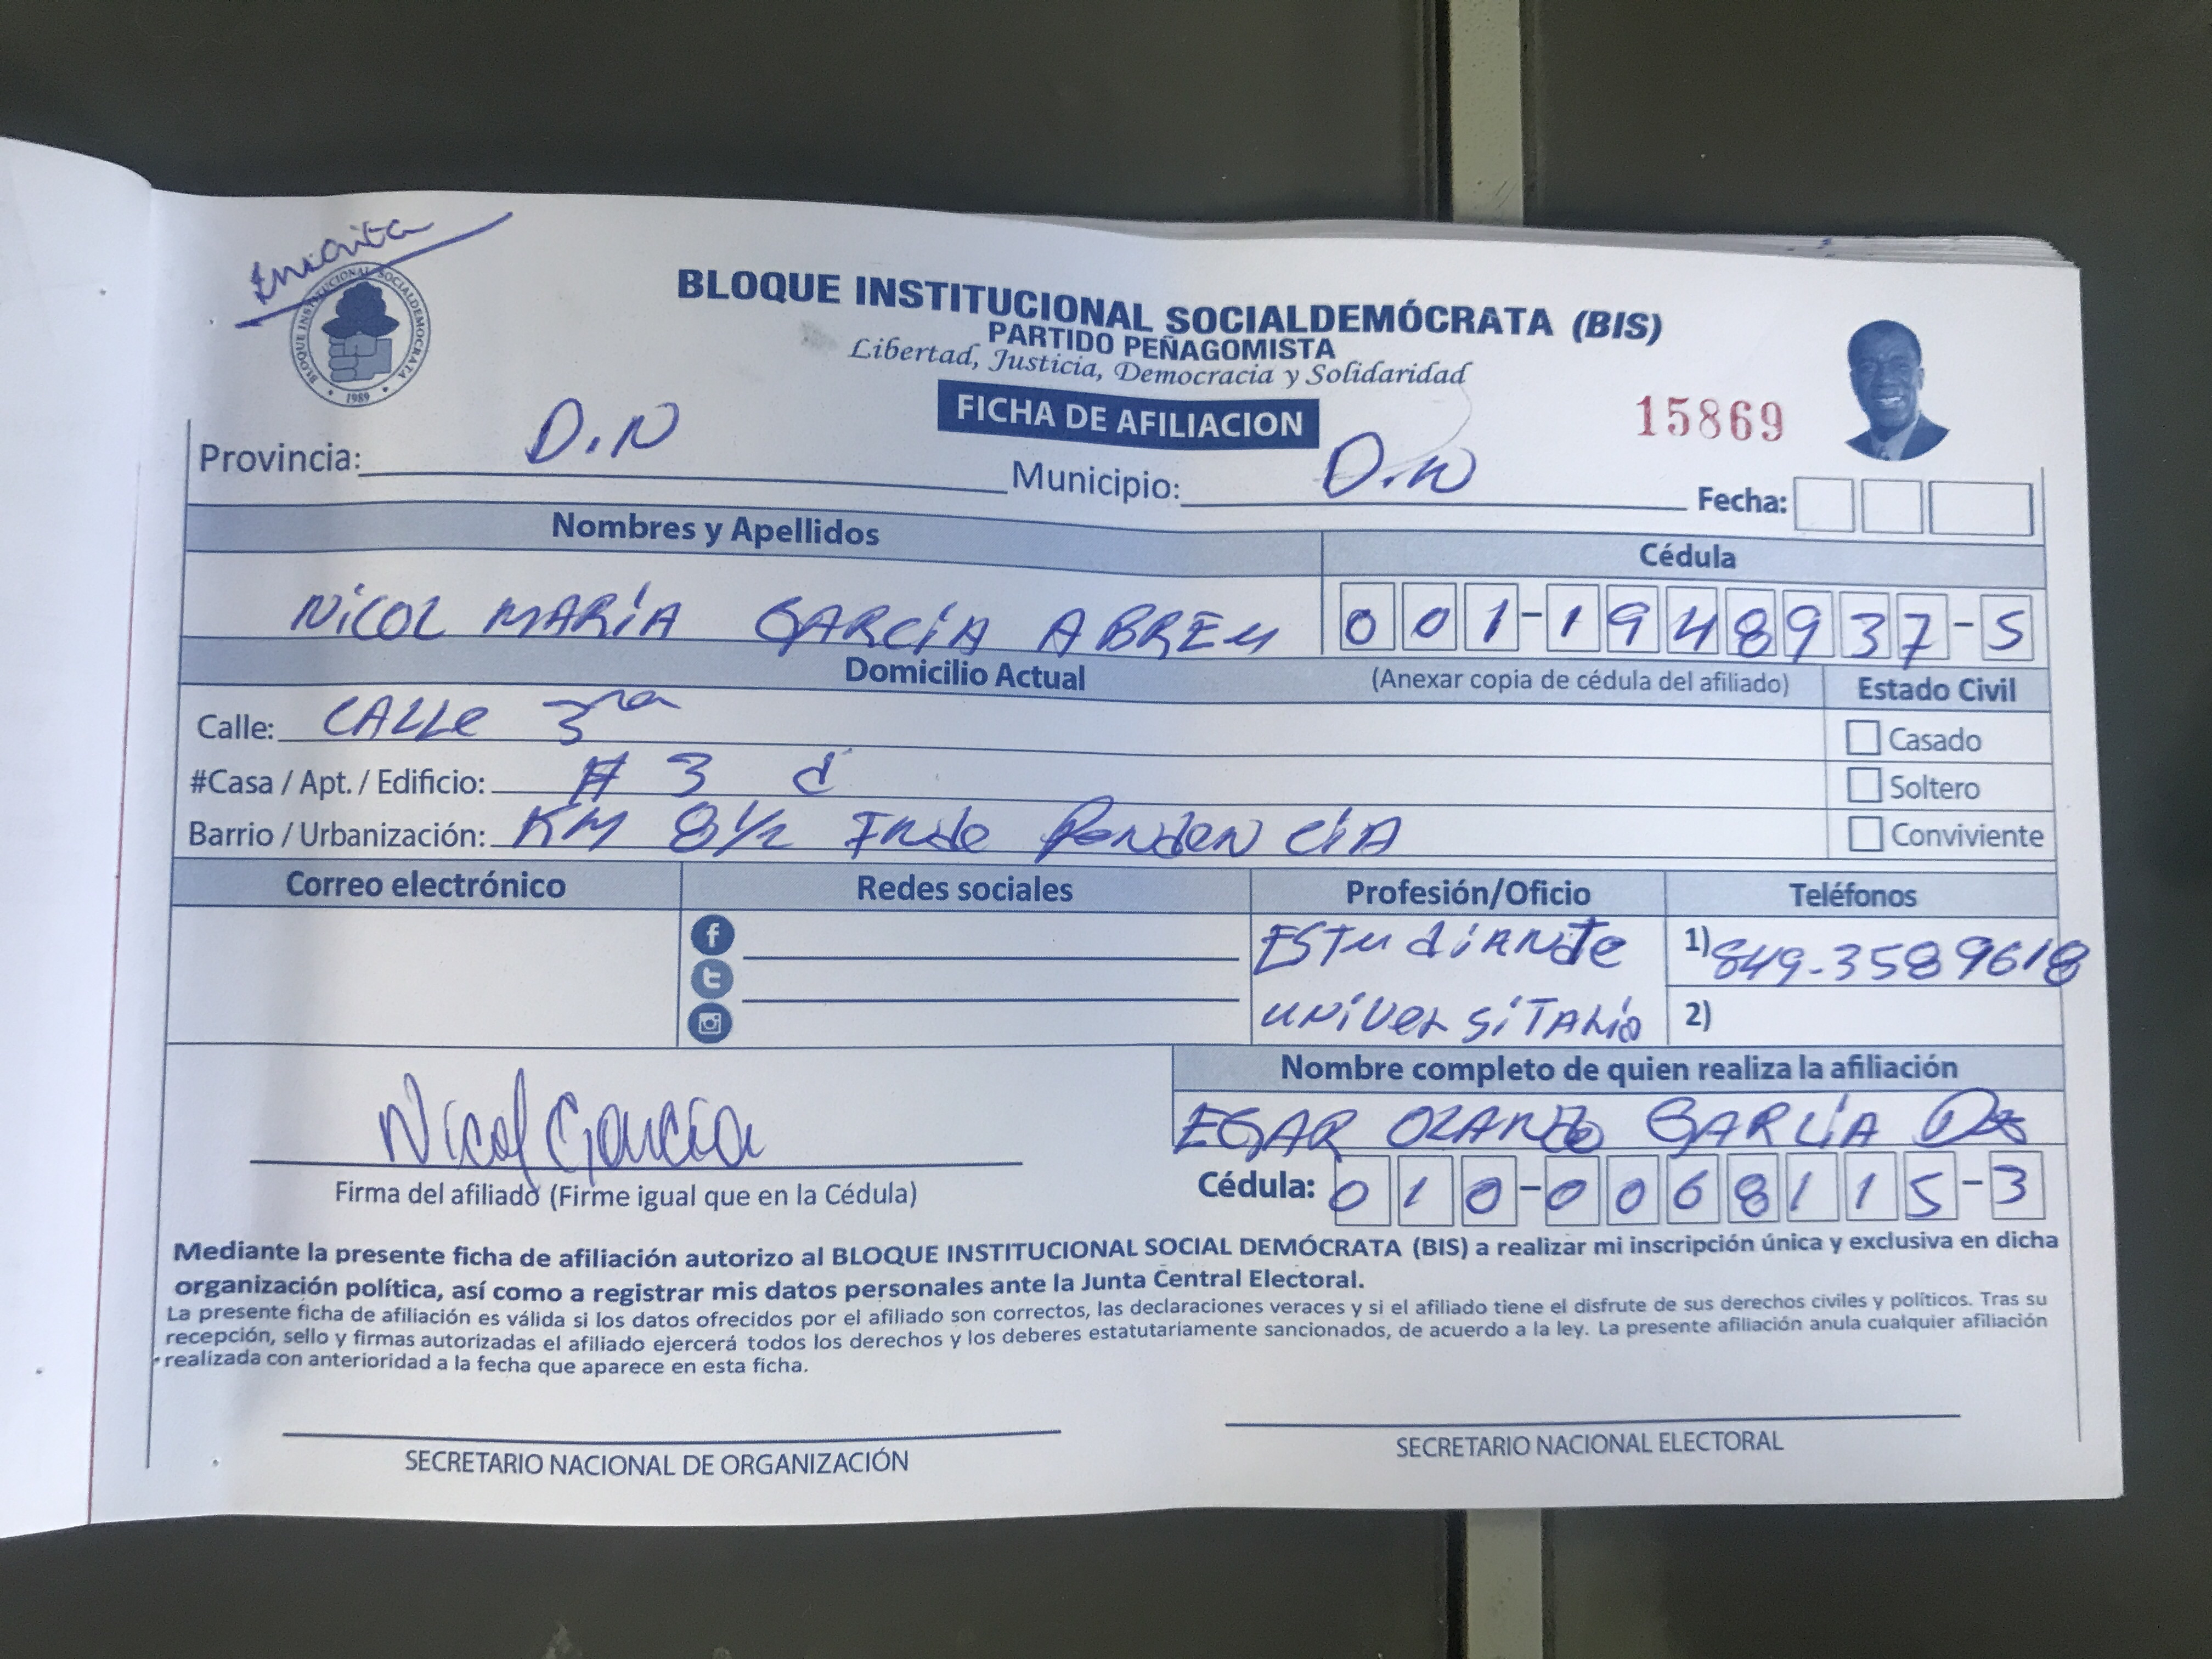 Inscrita
BLOQUE INSTITUCIONAL SOCIALDEMOCRATA
1989
BLOQUE INSTITUCIONAL SOCIALDEMÓCRATA (BIS)
PARTIDO PEÑAGOMISTA
Libertad, Justicia, Democracia y Solidaridad
FICHA DE AFILIACION
15869
Provincia: D.N Municipio: D.N Fecha:
Nombres y Apellidos Cédula
NICOL MARÍA GARCÍA ABREU 001-1948937-5
Domicilio Actual (Anexar copia de cédula del afiliado) Estado Civil
Calle: CALLE 3ra Casado
#Casa / Apt. / Edificio: # 3 d Soltero
Barrio / Urbanización: KM 8 1/2 Inde Penden CIA Conviviente
Correo electrónico Redes sociales Profesión/Oficio Teléfonos
ESTudiANTe 1) 849-3589618
UNIVERSITARIO 2)
Nombre completo de quien realiza la afiliación
EGAR GARCÍA
Nicol García
Firma del afiliado (Firme igual que en la Cédula) Cédula: 010-0068115-3
Mediante la presente ficha de afiliación autorizo al BLOQUE INSTITUCIONAL SOCIAL DEMÓCRATA (BIS) a realizar mi inscripción única y exclusiva en dicha
organización política, así como a registrar mis datos personales ante la Junta Central Electoral.
La presente ficha de afiliación es válida si los datos ofrecidos por el afiliado son correctos, las declaraciones veraces y si el afiliado tiene el disfrute de sus derechos civiles y políticos. Tras su
recepción, sello y firmas autorizadas el afiliado ejercerá todos los derechos y los deberes estatutariamente sancionados, de acuerdo a la ley. La presente afiliación anula cualquier afiliación
realizada con anterioridad a la fecha que aparece en esta ficha.
SECRETARIO NACIONAL DE ORGANIZACIÓN SECRETARIO NACIONAL ELECTORAL